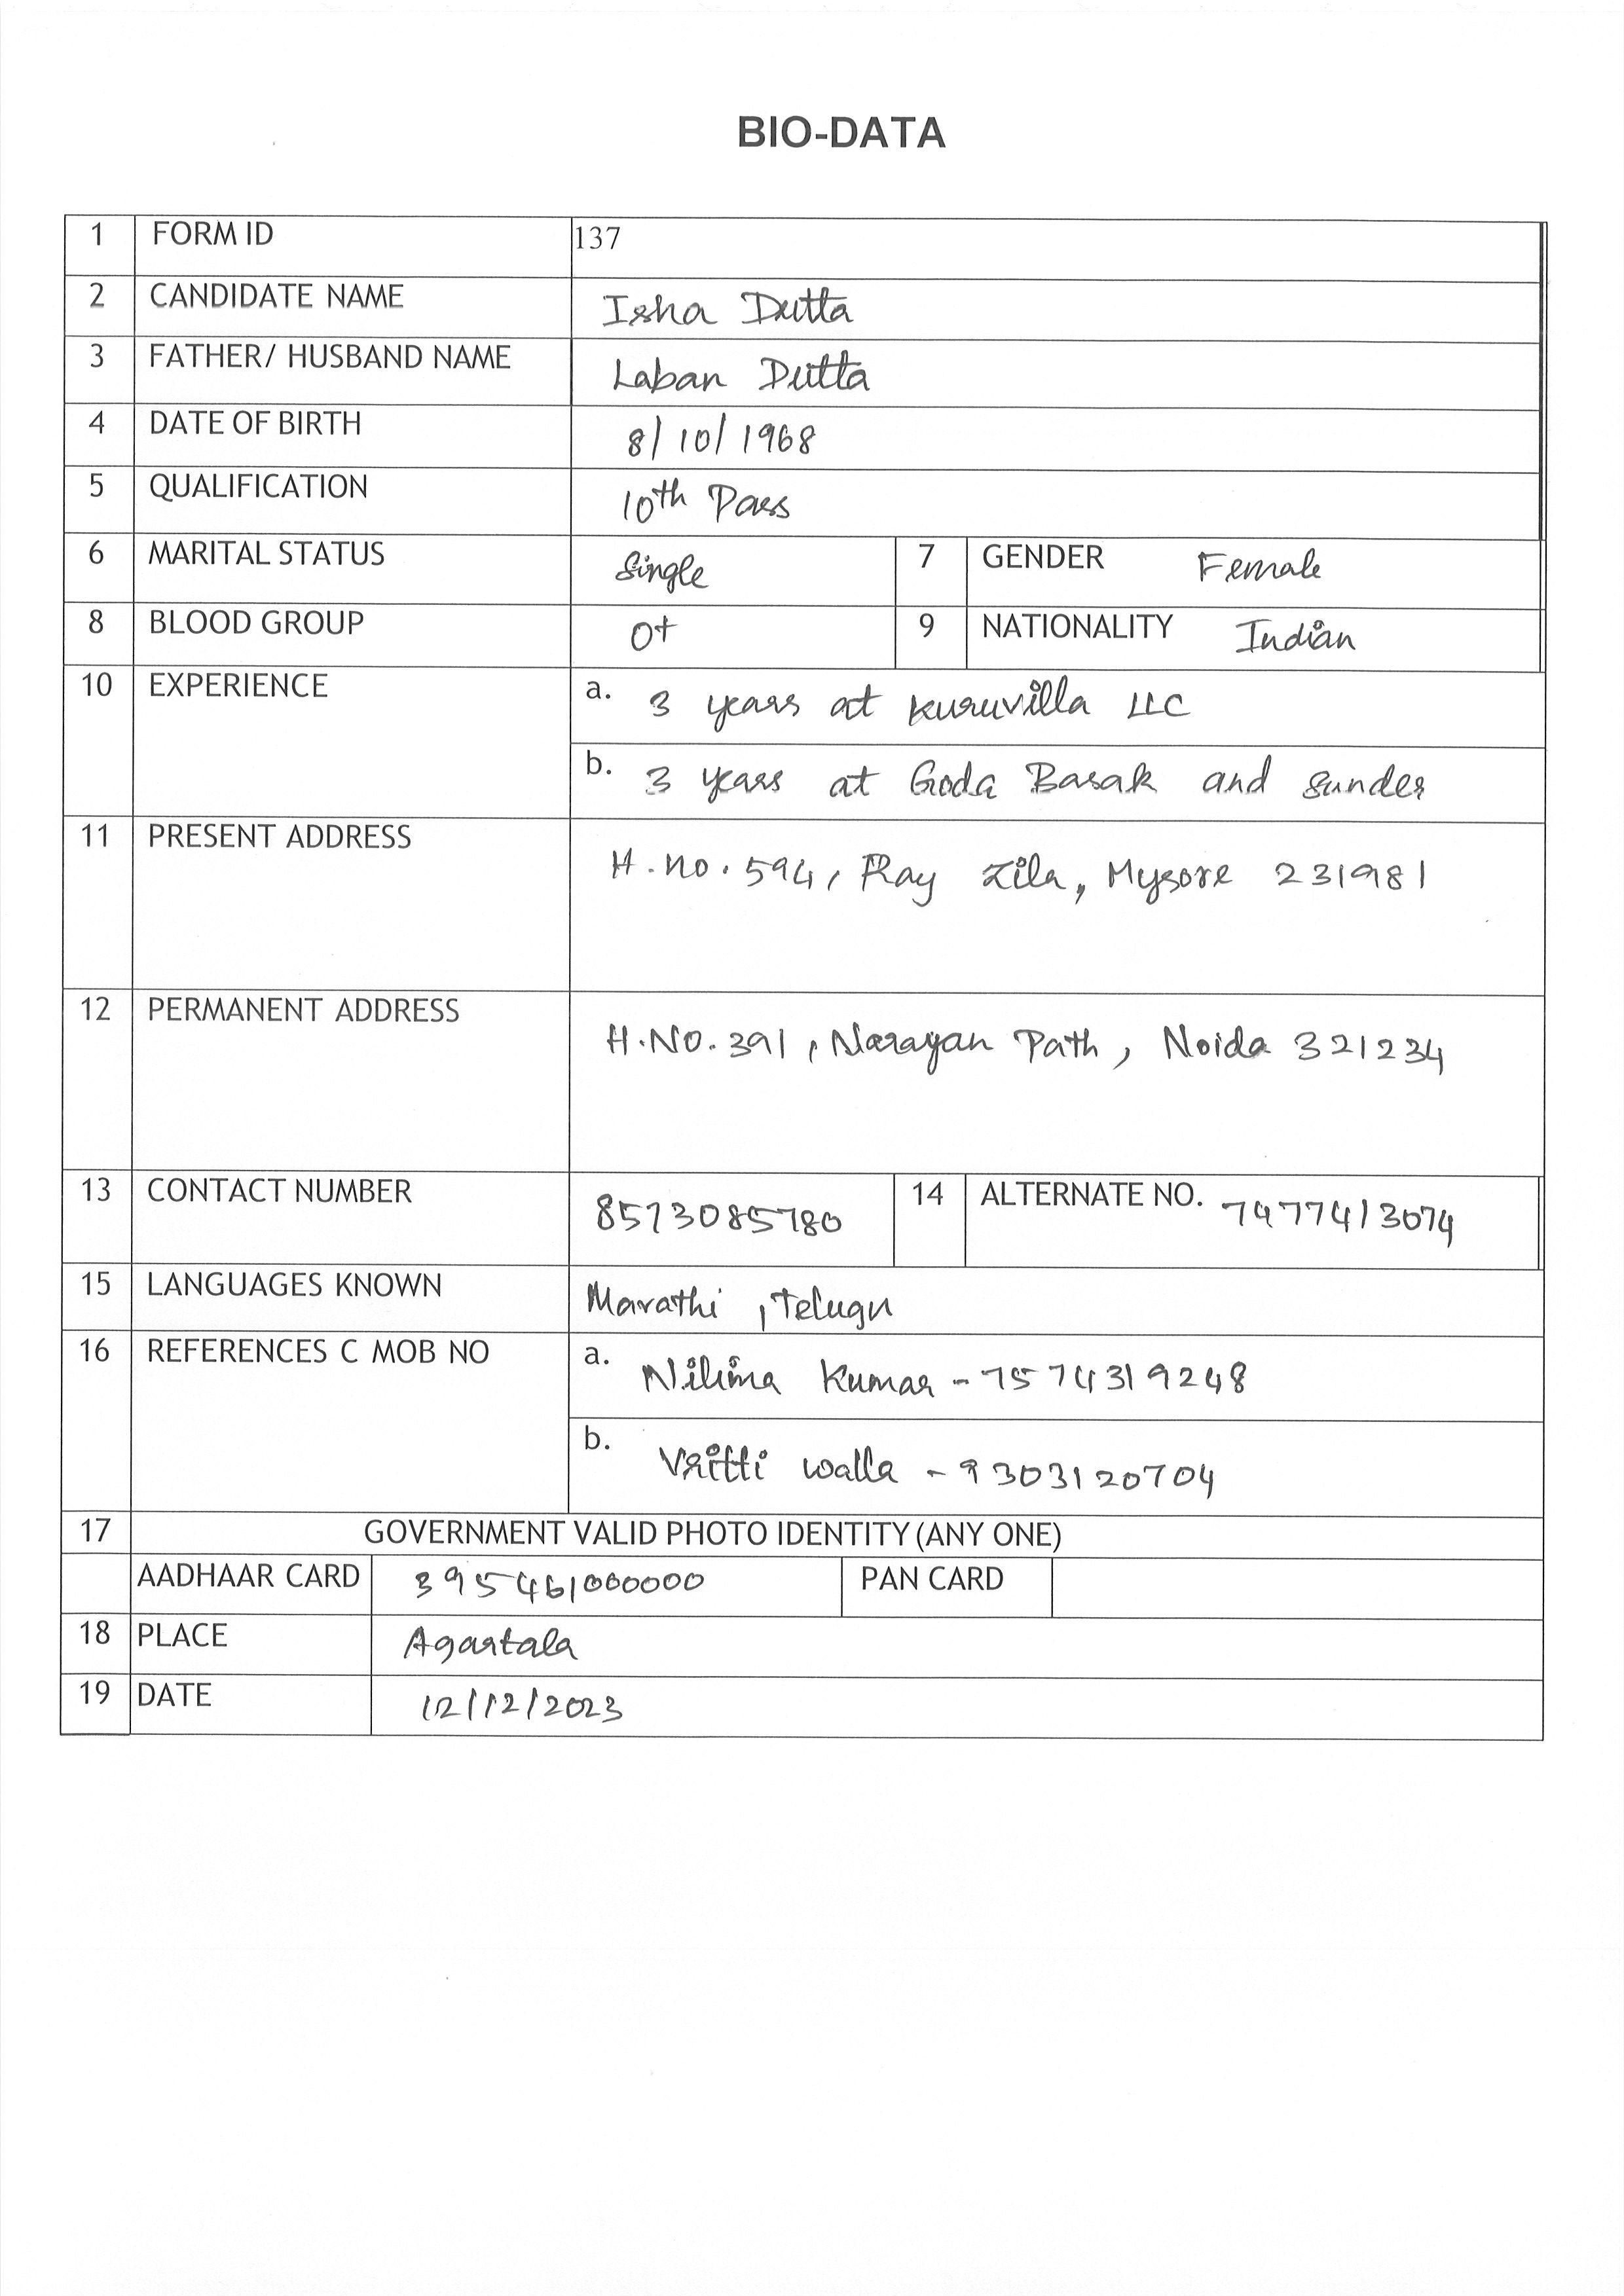 BIO-DATA
1 FORM ID 137
2 CANDIDATE NAME Isha Dutta
3 FATHER/ HUSBAND NAME Laban Dutta
4 DATE OF BIRTH 8/10/1968
5 QUALIFICATION 10th Pass
6 MARITAL STATUS Single 7 GENDER Female
8 BLOOD GROUP O+ 9 NATIONALITY Indian
10 EXPERIENCE a. 3 years at Kuruvilla LLC
b. 3 years at Goda Basak and Sunder
11 PRESENT ADDRESS H.no.594, Ray Zila, Mysore 231981
12 PERMANENT ADDRESS H.NO.391, Narayan Path, Noida 321234
13 CONTACT NUMBER 8573085780 14 ALTERNATE NO. 7477413074
15 LANGUAGES KNOWN Marathi, Telugu
16 REFERENCES C MOB NO a. Nilima Kumar - 7574319248
b. Vritti Walla - 9303120704
17 GOVERNMENT VALID PHOTO IDENTITY (ANY ONE)
AADHAAR CARD 395461000000 PAN CARD
18 PLACE Agartala
19 DATE 12/12/2023